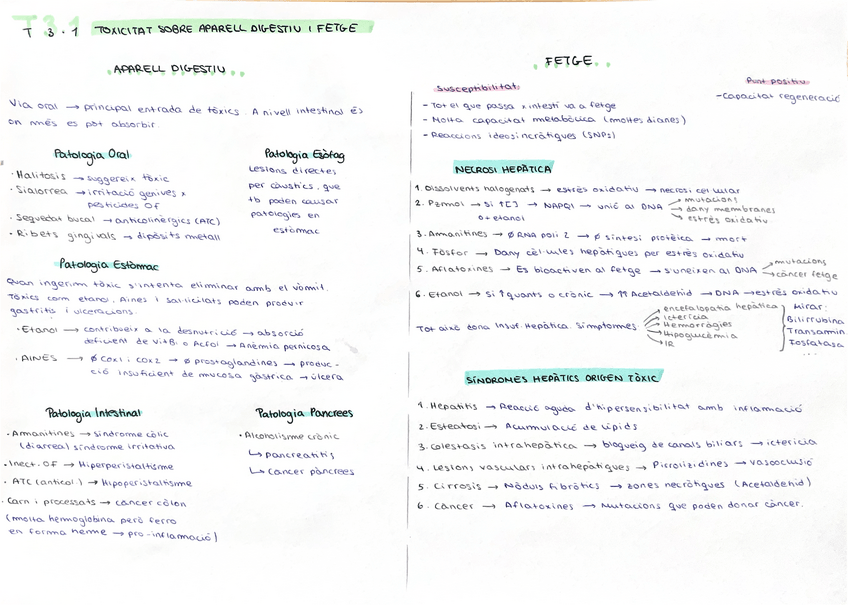 T 3.1 TOXICITAT SOBRE APARELL DIGESTIU I FETGE
APARELL DIGESTIU
Via oral → principal entrada de tòxics. A nivell intestinal és
on més es pot absorbir.
Patologia Oral
· Halitosis → suggereix tòxic
· Sialorrea → irritació genives x
pesticides OF
· Sequedat bucal → anticolinèrgics (ATC)
· Ribets gingivals → dipòsits metall
Patologia Esòfag
Lesions directes
per càustics, que
tb poden causar
patologies en
estómac
Patologia Estómac
Quan ingerim tòxic s'intenta eliminar amb el vòmit.
Tòxics com etanol, Aines i salicilats poden produir
gastritis i ulceracions.
· Etanol → contribueix a la desnutrició → absorció
deficient de vit B12 o Ac fol → Anèmia perniciosa
· AINES → Ø COX1 i COX2 → Ø prostaglandines → produc-
ció insuficient de mucosa gàstrica → úlcera
Patologia Intestinal
· Amanitines → síndrome còlic
(diarrea) síndrome irritativa
· Inect. OF → Hiperperistaltisme
· ATC (anticol.) → Hipoperistaltisme
· Carn i processats → càncer còlon
(molta hemoglobina però ferro
en forma heme → pro-inflamació)
Patologia Pàncrees
· Alcoholisme crònic
↳ pancreatitis
↳ càncer pàncrees
FETGE
Susceptibilitat
- Tot el que passa x intestí va a fetge
- Molta capacitat metabòlica (moltes dianes)
- Reaccions ideosincràtiques (SNPs)
Punt positiu
- Capacitat regeneració
NECROSI HEPÀTICA
1. Dissolvents halogenats → estrès oxidatiu → necrosi cel·lular
2. Pzmol → Si ↑[ ] → NAPQI → unió al DNA → mutacions
→ dany membranes
→ estrès oxidatiu
o + etanol
3. Amanitines → Ø RNA pol II → Ø síntesi protèica → mort
4. Fòsfor → Dany cèl·lules hepàtiques per estrès oxidatiu
5. Aflatoxines → Es bioactiven al fetge → s'uneixen al DNA → mutacions
→ càncer fetge
6. Etanol → Si ↑ quants o crònic → ↑↑ Acetaldehid → DNA → estrès oxidatiu
Tot això dona Insuf. Hepàtica. Símptomes → encefalopatia hepàtica
→ ictericia
→ Hemorràgies
→ Hipoglucèmia
→ IR
Mirar:
Bilirrubina
Transamin.
Fosfatasa
...
SÍNDROMES HEPÀTICS ORIGEN TÒXIC
1. Hepatitis → Reacció aguda d'hipersensibilitat amb inflamació
2. Esteatosi → Acumulació de lípids
3. Colestasis intrahepàtica → bloqueig de canals biliars → ictericia
4. Lesions vasculars intrahepàtiques → Pirrolizidines → vasooclusió
5. Cirrosis → Nòduls fibròtics → zones necròtiques (Acetaldehid)
6. Càncer → Aflatoxines → Mutacions que poden donar càncer.